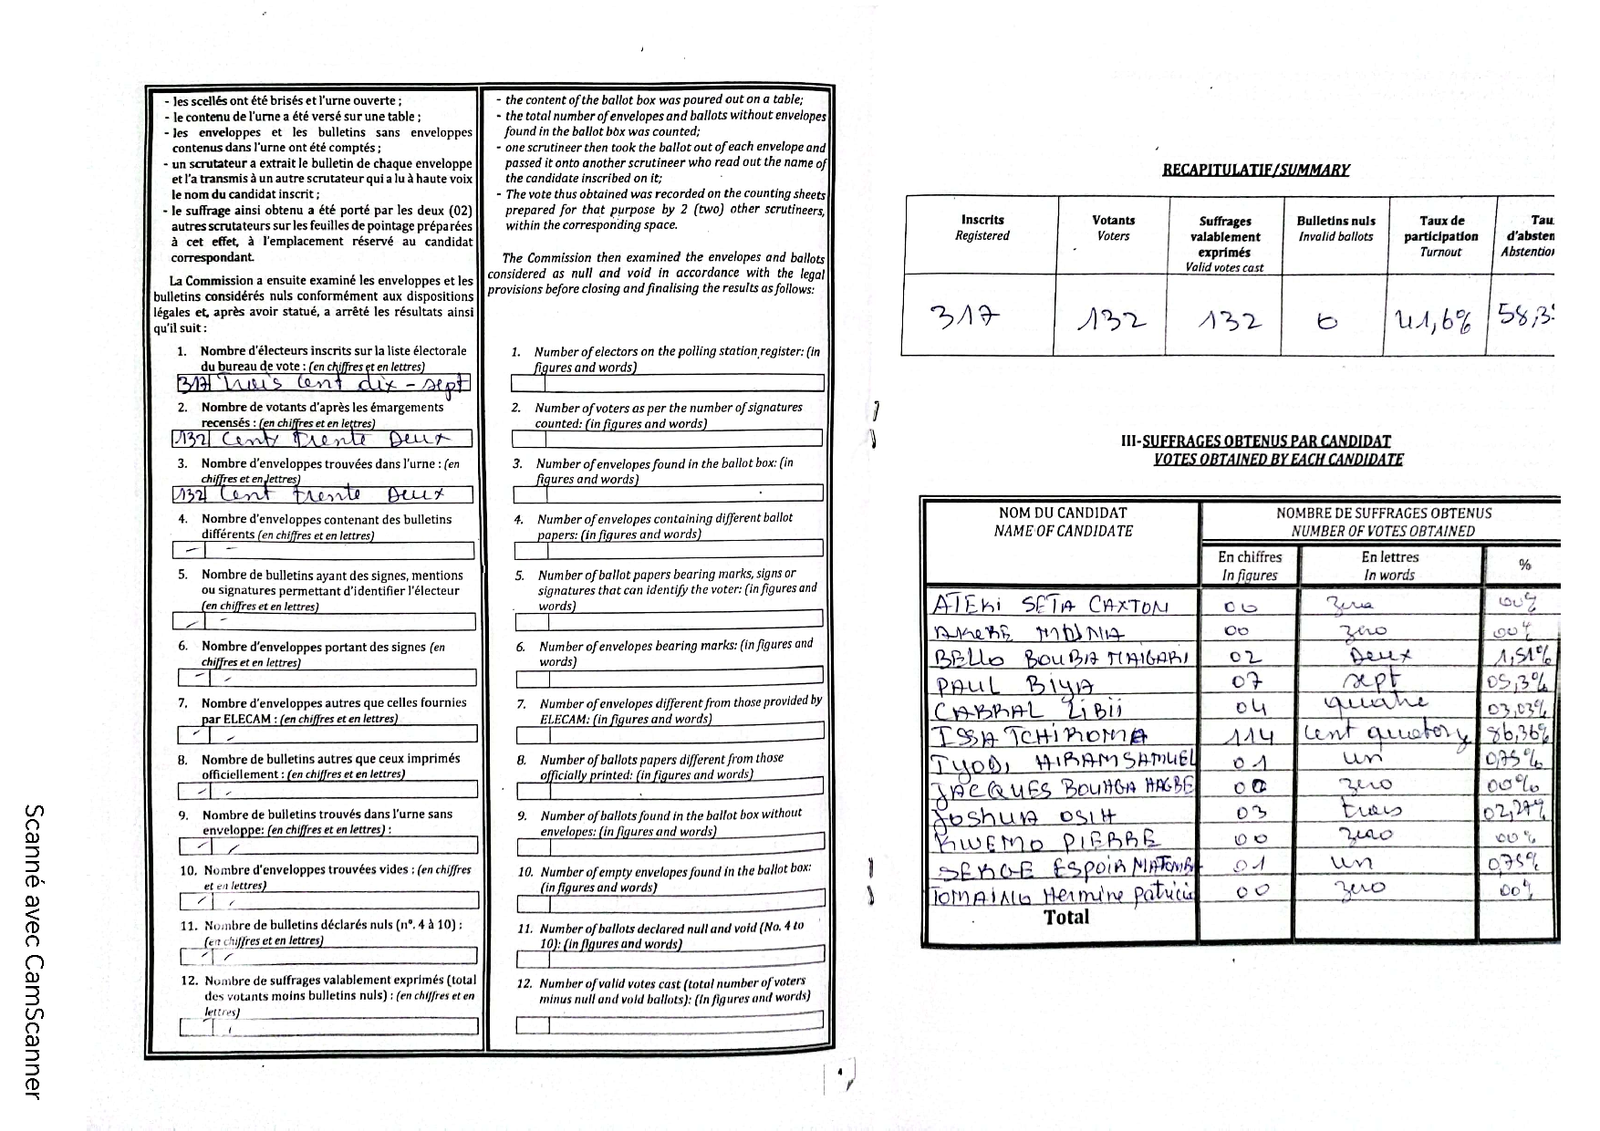 - les scellés ont été brisés et l'urne ouverte ;
- le contenu de l'urne a été versé sur une table ;
- les enveloppes et les bulletins sans enveloppes
contenus dans l'urne ont été comptés ;
- un scrutateur a extrait le bulletin de chaque enveloppe
et l'a transmis à un autre scrutateur qui a lu à haute voix
le nom du candidat inscrit ;
- le suffrage ainsi obtenu a été porté par les deux (02)
autres scrutateurs sur les feuilles de pointage préparées
à cet effet, à l'emplacement réservé au candidat
correspondant.
La Commission a ensuite examiné les enveloppes et les
bulletins considérés nuls conformément aux dispositions
légales et, après avoir statué, a arrêté les résultats ainsi
qu'il suit :
1. Nombre d'électeurs inscrits sur la liste électorale
du bureau de vote : (en chiffres et en lettres)
317 Trois Cent dix - sept
2. Nombre de votants d'après les émargements
recensés : (en chiffres et en lettres)
132 Cent trente Deux
3. Nombre d'enveloppes trouvées dans l'urne : (en
chiffres et en lettres)
132 Cent trente Deux
4. Nombre d'enveloppes contenant des bulletins
différents (en chiffres et en lettres)
5. Nombre de bulletins ayant des signes, mentions
ou signatures permettant d'identifier l'électeur
(en chiffres et en lettres)
6. Nombre d'enveloppes portant des signes (en
chiffres et en lettres)
7. Nombre d'enveloppes autres que celles fournies
par ELECAM : (en chiffres et en lettres)
8. Nombre de bulletins autres que ceux imprimés
officiellement : (en chiffres et en lettres)
9. Nombre de bulletins trouvés dans l'urne sans
enveloppe: (en chiffres et en lettres) :
10. Nombre d'enveloppes trouvées vides : (en chiffres
et en lettres)
11. Nombre de bulletins déclarés nuls (n°. 4 à 10) :
(en chiffres et en lettres)
12. Nombre de suffrages valablement exprimés (total
des votants moins bulletins nuls) : (en chiffres et en
lettres)
- the content of the ballot box was poured out on a table;
- the total number of envelopes and ballots without envelopes
found in the ballot box was counted;
- one scrutineer then took the ballot out of each envelope and
passed it onto another scrutineer who read out the name of
the candidate inscribed on it;
- The vote thus obtained was recorded on the counting sheets
prepared for that purpose by 2 (two) other scrutineers,
within the corresponding space.
The Commission then examined the envelopes and ballots
considered as null and void in accordance with the legal
provisions before closing and finalising the results as follows:
1. Number of electors on the polling station register: (in
figures and words)
2. Number of voters as per the number of signatures
counted: (in figures and words)
3. Number of envelopes found in the ballot box: (in
figures and words)
4. Number of envelopes containing different ballot
papers: (in figures and words)
5. Number of ballot papers bearing marks, signs or
signatures that can identify the voter: (in figures and
words)
6. Number of envelopes bearing marks: (in figures and
words)
7. Number of envelopes different from those provided by
ELECAM: (in figures and words)
8. Number of ballots papers different from those
officially printed: (in figures and words)
9. Number of ballots found in the ballot box without
envelopes: (in figures and words)
10. Number of empty envelopes found in the ballot box:
(in figures and words)
11. Number of ballots declared null and void (No. 4 to
10): (in figures and words)
12. Number of valid votes cast (total number of voters
minus null and void ballots): (in figures and words)
RECAPITULATIF/SUMMARY
Inscrits Registered
Votants Voters
Suffrages valablement exprimés Valid votes cast
Bulletins nuls Invalid ballots
Taux de participation Turnout
Tau d'absten Abstention
317 132 132 0 41,6% 58,3
III-SUFFRAGES OBTENUS PAR CANDIDAT
VOTES OBTAINED BY EACH CANDIDATE
NOM DU CANDIDAT
NAME OF CANDIDATE
NOMBRE DE SUFFRAGES OBTENUS
NUMBER OF VOTES OBTAINED
En chiffres In figures
En lettres In words
%
ATEKI SETA CAXTON 00 zero 00%
AKERE MUNA 00 zéro 00%
BELLO BOUBA MAIGARI 02 Deux 1,51%
PAUL BIYA 07 sept 05,3%
CABRAL LIBII 04 quatre 03,03%
ISSA TCHIROMA 114 cent quatorz 86,36%
IYODI HIRAM SAMUEL 01 un 0,75%
JACQUES BOUHGA HAGBE 00 zéro 00%
JOSHUA OSIH 03 trois 02,27%
KWEMO PIERRE 00 zéro 00%
SERGE ESPOIR MATOMB 01 un 0,75%
TOMAINO Hermine patricia 00 zéro 00%
Total
Scanné avec CamScanner